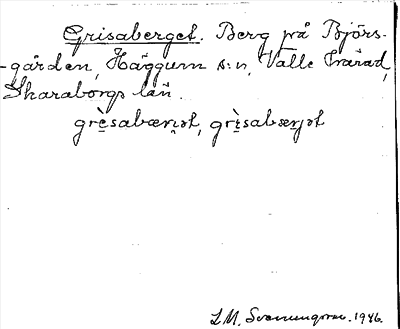 Grisaberget. Berg på Björs-
-gården, Häggum s:n, Valle härad,
Skaraborgs län.
grèsabærɟət, grìsabærjət
L.M. Svenungsson. 1946.